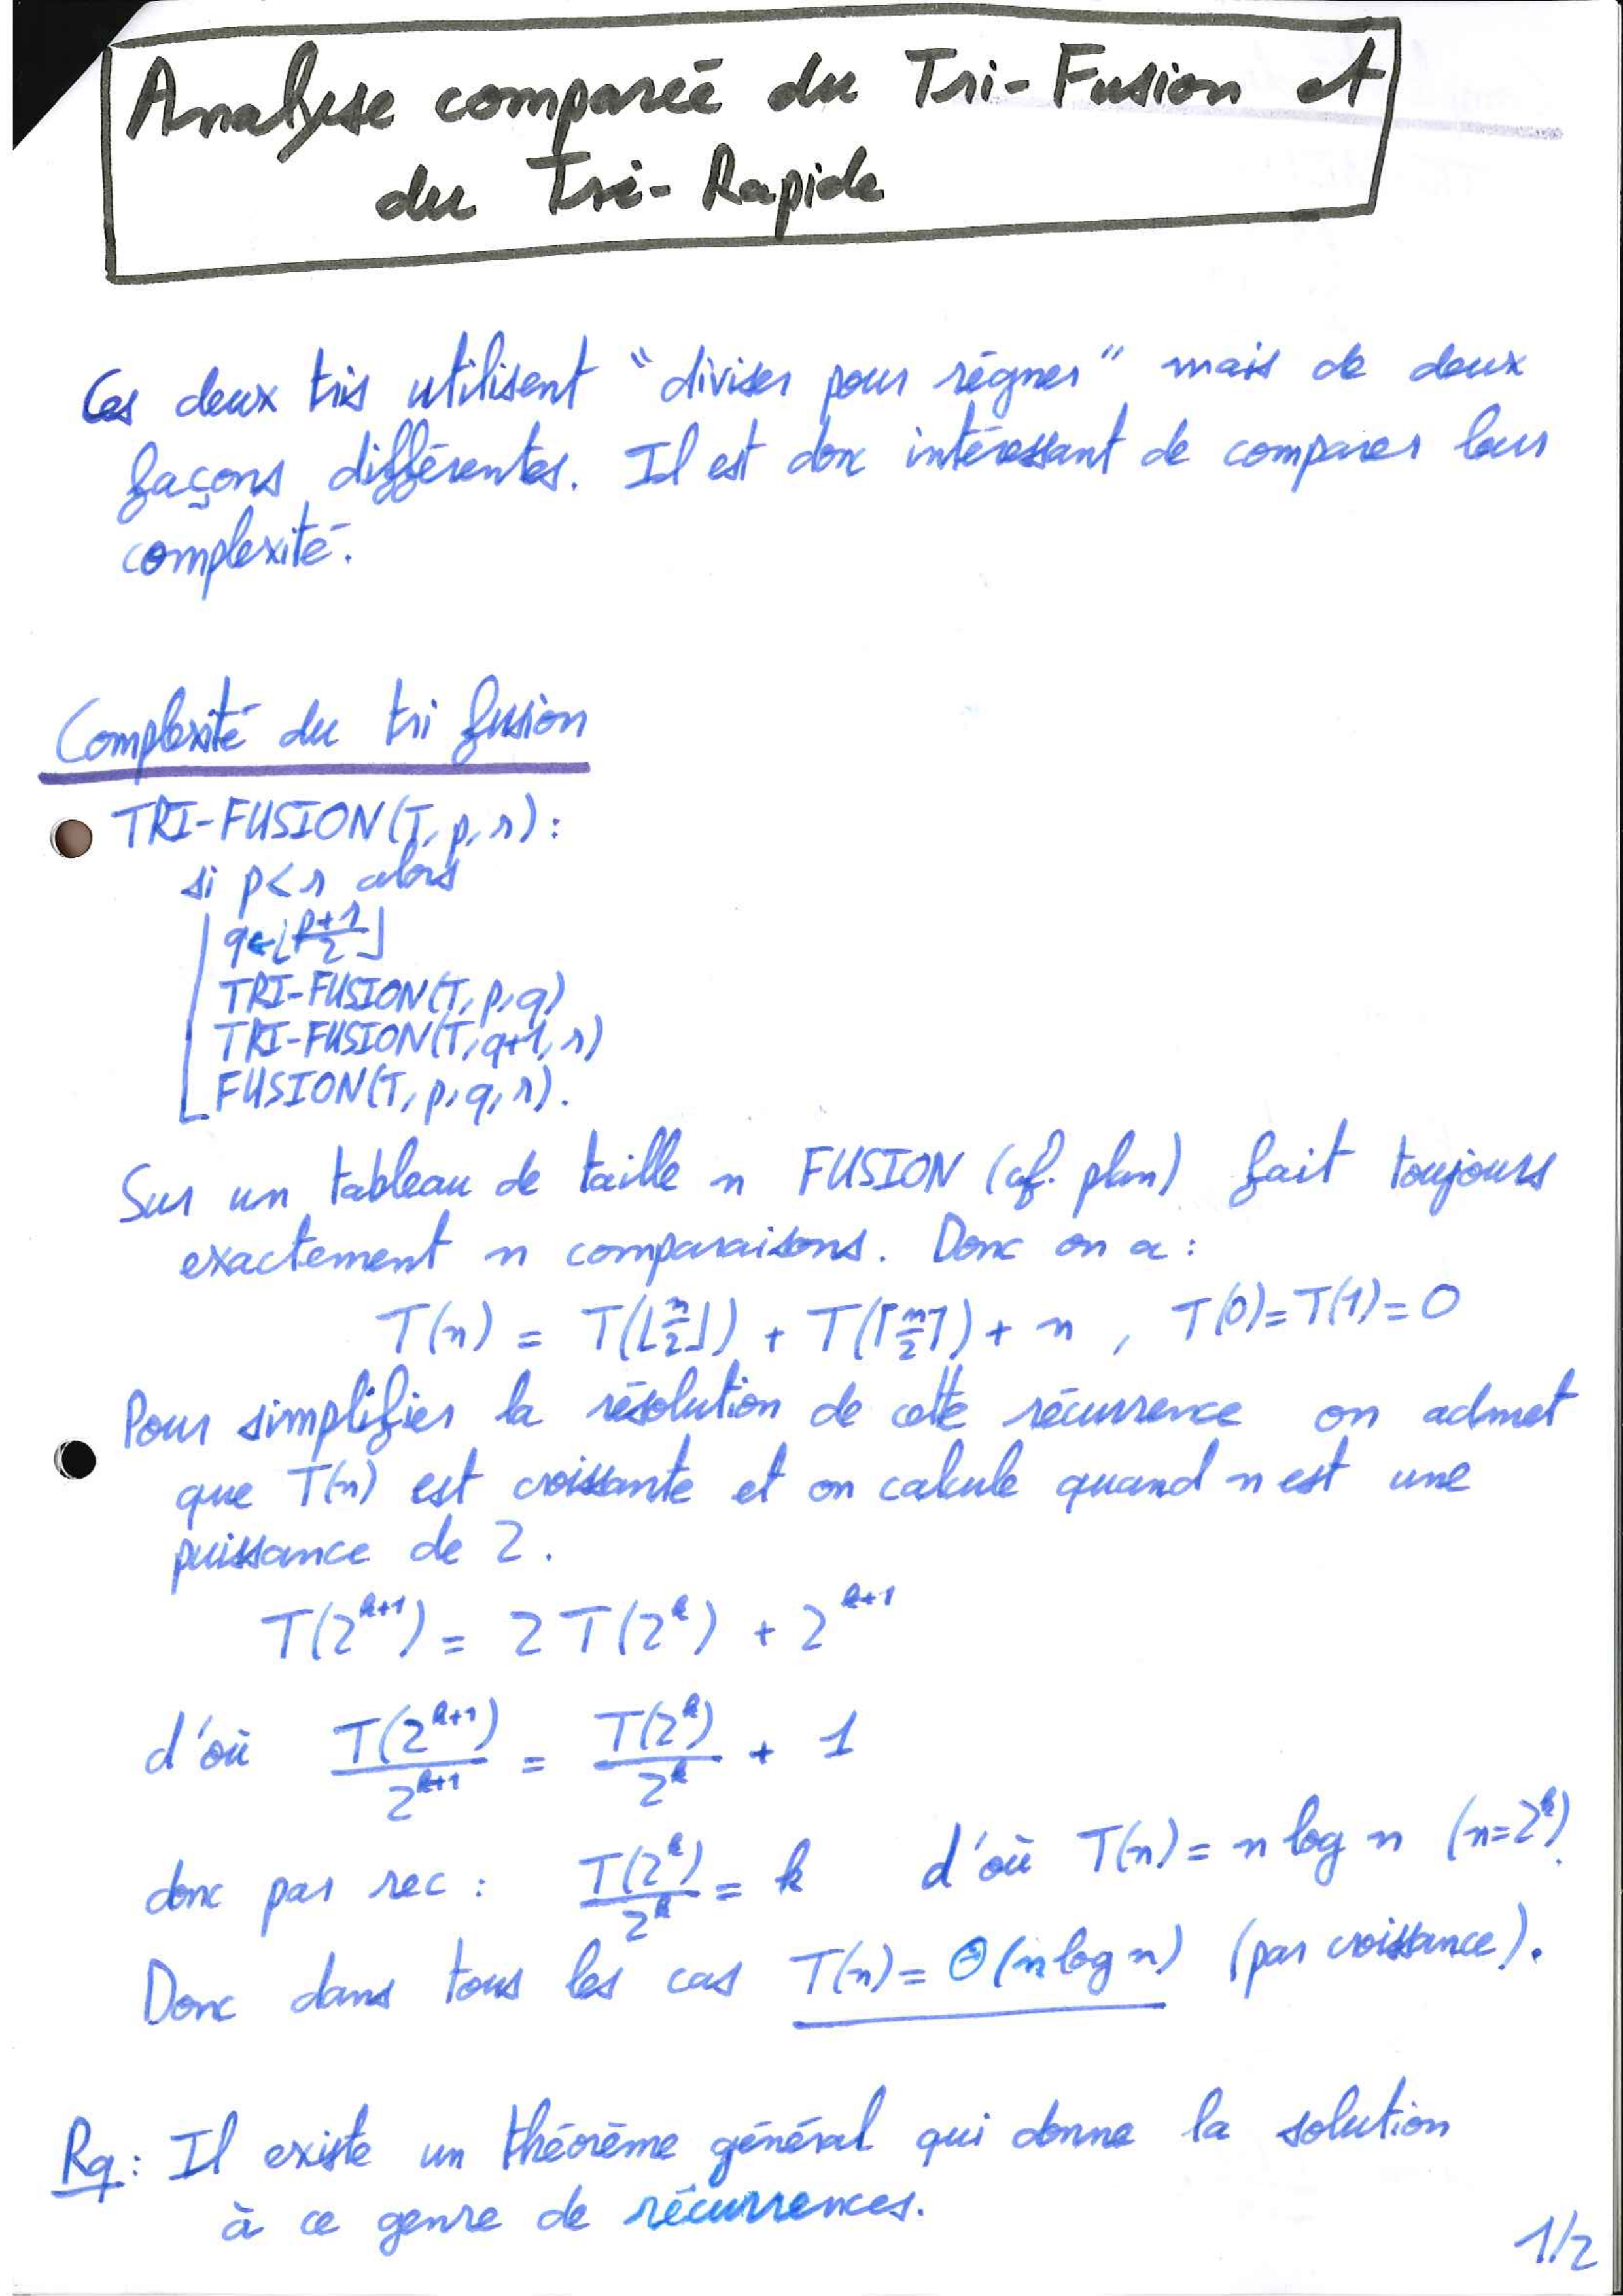 Analyse comparée du Tri-Fusion et
du Tri-Rapide
Ces deux tris utilisent "diviser pour régner" mais de deux
façons différentes. Il est donc intéressant de comparer leur
complexité.
Complexité du tri fusion
TRI-FUSION(T, p, r):
si p < r alors
q ← ⌊(p+r)/2⌋
TRI-FUSION(T, p, q)
TRI-FUSION(T, q+1, r)
FUSION(T, p, q, r).
Sur un tableau de taille n FUSION (cf. plan) fait toujours
exactement n comparaisons. Donc on a :
T(n) = T(⌊n/2⌋) + T(⌈n/2⌉) + n , T(0) = T(1) = 0
Pour simplifier la résolution de cette récurrence on admet
que T(n) est croissante et on calcule quand n est une
puissance de 2.
T(2^{k+1}) = 2 T(2^k) + 2^{k+1}
d'où T(2^{k+1})/2^{k+1} = T(2^k)/2^k + 1
donc par rec : T(2^k)/2^k = k d'où T(n) = n log n (n=2^k).
Donc dans tous les cas T(n) = Θ(n log n) (par croissance).
Rq : Il existe un théorème général qui donne la solution
à ce genre de récurrences.
1/2